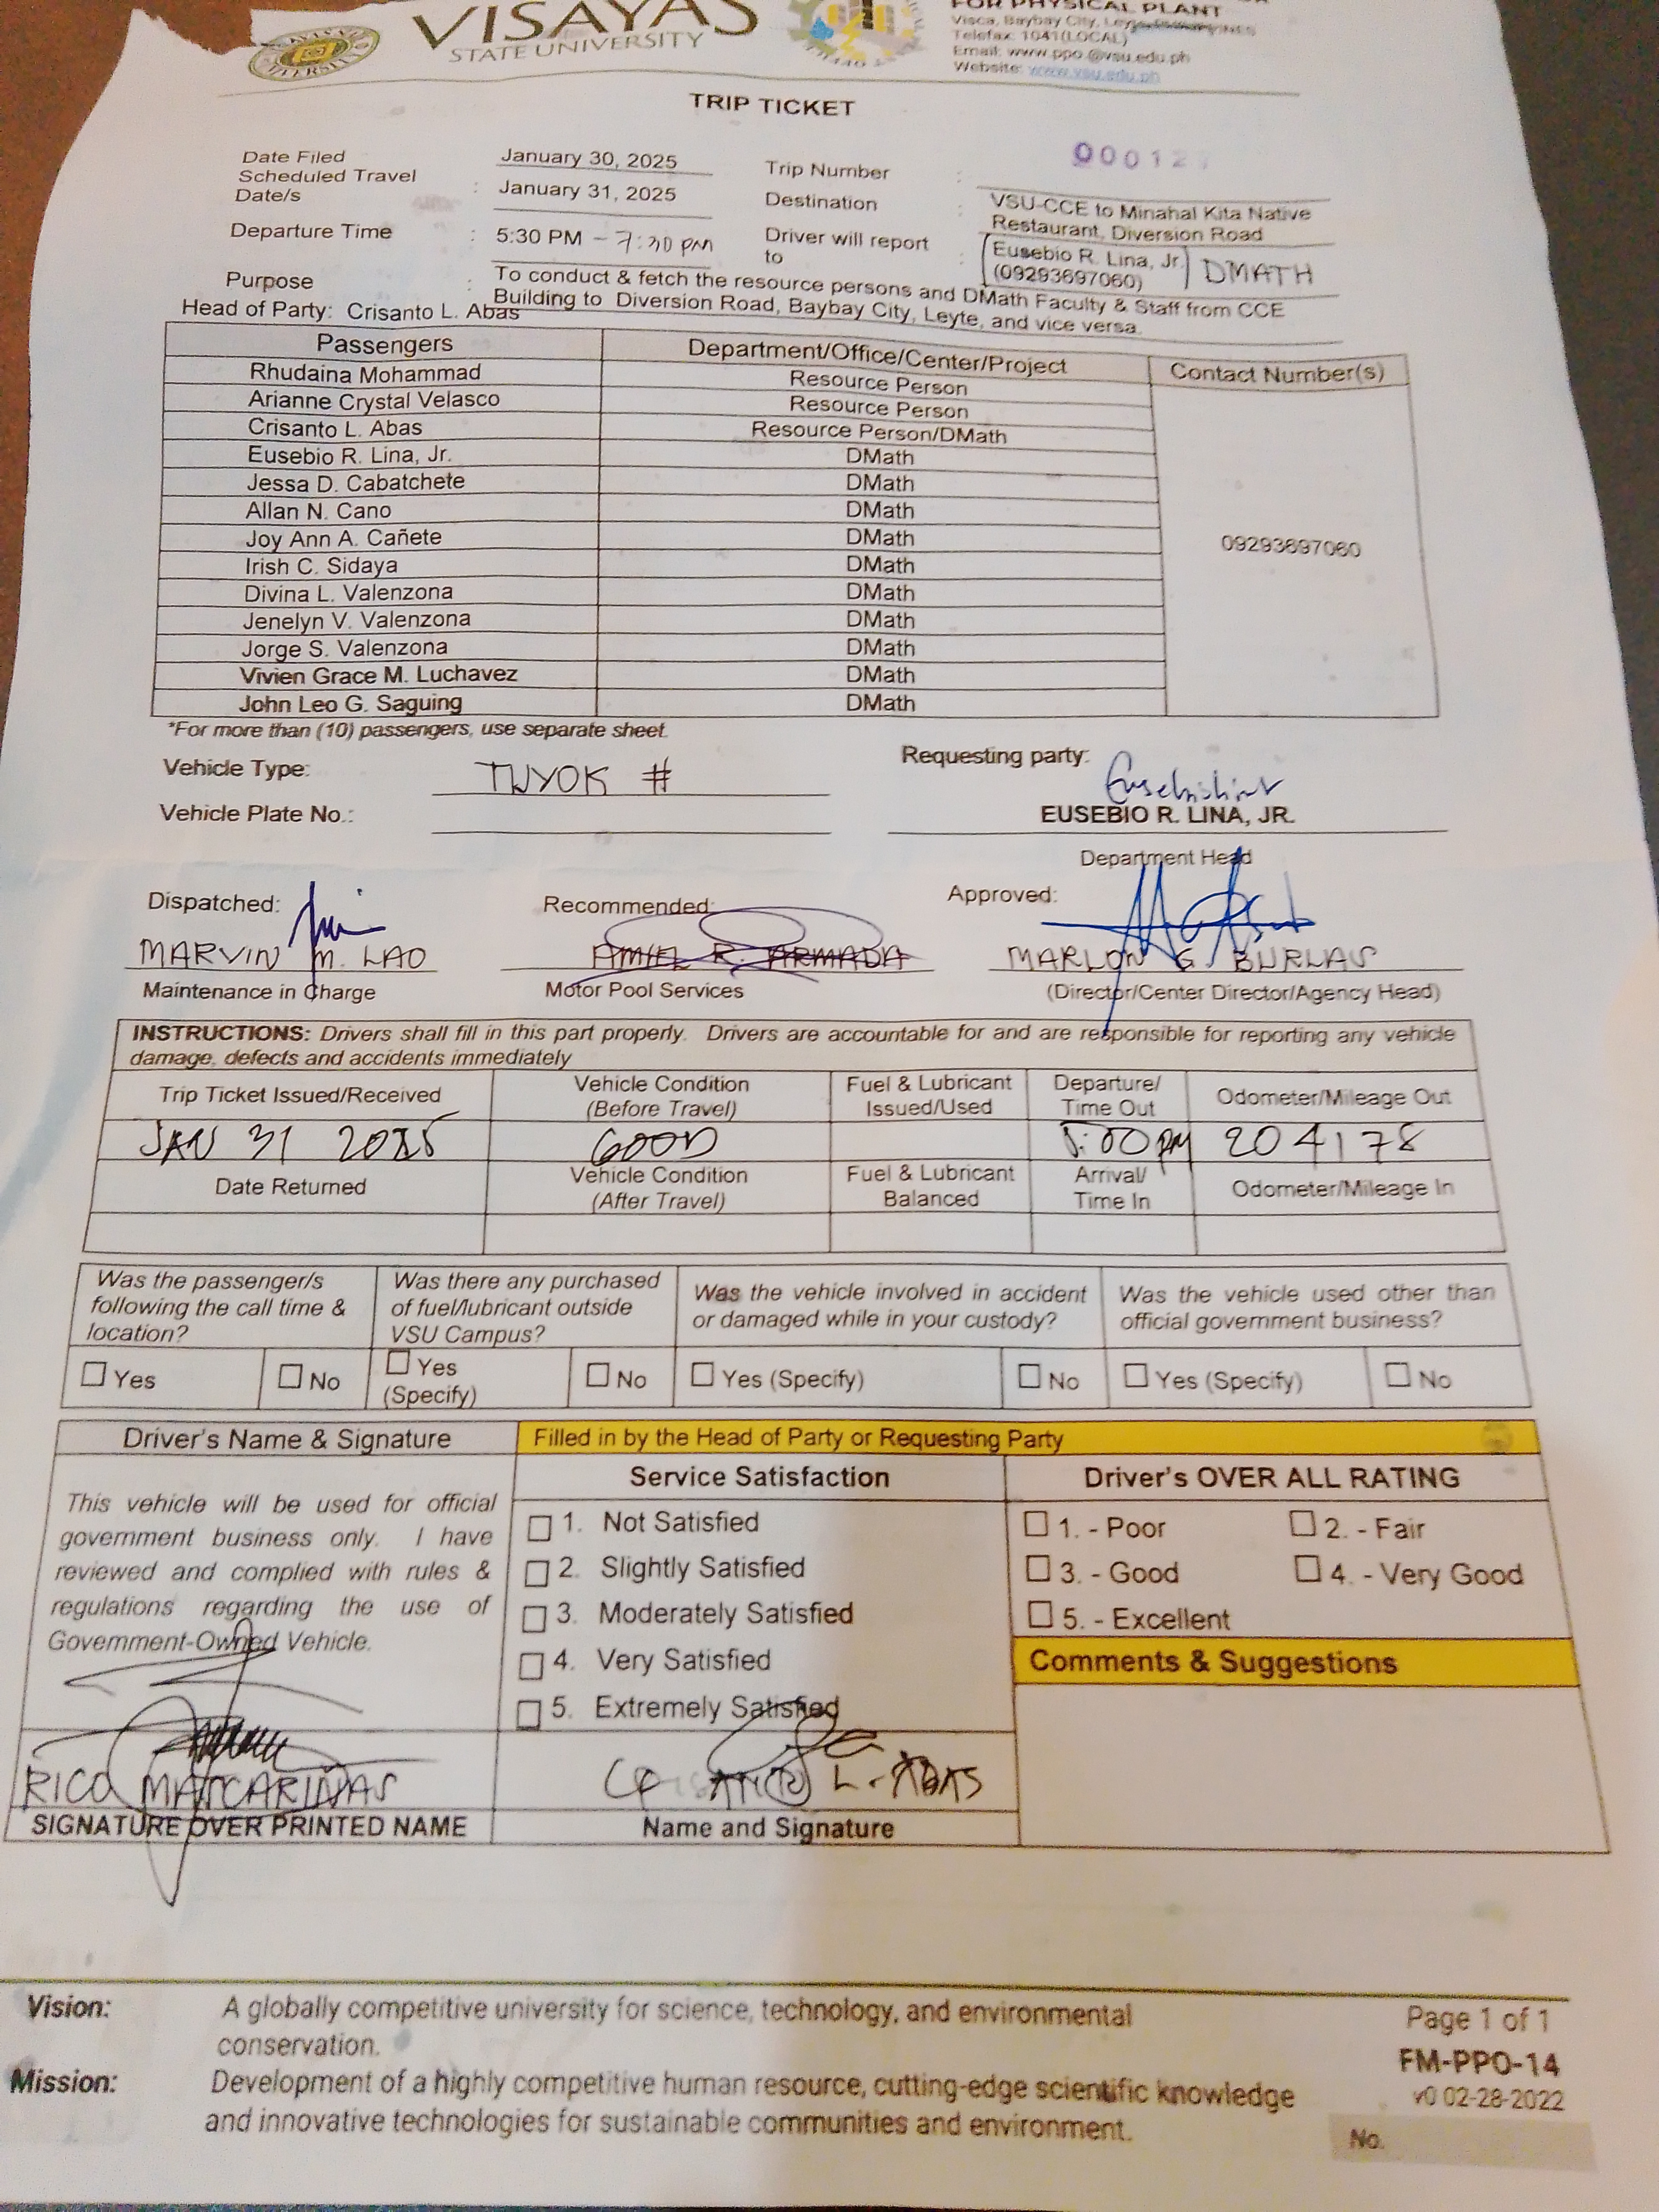 VISAYAS
STATE UNIVERSITY
FOR PHYSICAL PLANT
Visca, Baybay City, Leyte
Telefax: 1041(LOCAL)
Email: www.ppo.@vsu.edu.ph
Website: www.vsu.edu.ph
TRIP TICKET
Date Filed January 30, 2025 Trip Number : 00012
Scheduled Travel Date/s : January 31, 2025 Destination : VSU-CCE to Minahal Kita Native
Restaurant, Diversion Road
Departure Time : 5:30 PM - 7:30 PM Driver will report to : Eusebio R. Lina, Jr. DMATH
(09293697060)
Purpose : To conduct & fetch the resource persons and DMath Faculty & Staff from CCE
Building to Diversion Road, Baybay City, Leyte, and vice versa.
Head of Party: Crisanto L. Abas
Passengers Department/Office/Center/Project Contact Number(s)
Rhudaina Mohammad Resource Person
Arianne Crystal Velasco Resource Person
Crisanto L. Abas Resource Person/DMath
Eusebio R. Lina, Jr. DMath
Jessa D. Cabatchete DMath
Allan N. Cano DMath
Joy Ann A. Cañete DMath 09293697060
Irish C. Sidaya DMath
Divina L. Valenzona DMath
Jenelyn V. Valenzona DMath
Jorge S. Valenzona DMath
Vivien Grace M. Luchavez DMath
John Leo G. Saguing DMath
*For more than (10) passengers, use separate sheet.
Vehicle Type: TWYOK # Requesting party:
Vehicle Plate No.: EUSEBIO R. LINA, JR.
Department Head
Dispatched: Recommended: Approved:
MARVIN M. LAO AMIEL R. ARMADA MARLON G. BURLAS
Maintenance in Charge Motor Pool Services (Director/Center Director/Agency Head)
INSTRUCTIONS: Drivers shall fill in this part properly. Drivers are accountable for and are responsible for reporting any vehicle
damage, defects and accidents immediately
Trip Ticket Issued/Received Vehicle Condition (Before Travel) Fuel & Lubricant Issued/Used Departure/ Time Out Odometer/Mileage Out
JAN 31 2025 GOOD 5:00 PM 204178
Date Returned Vehicle Condition (After Travel) Fuel & Lubricant Balanced Arrival/ Time In Odometer/Mileage In
Was the passenger/s following the call time & location? Was there any purchased of fuel/lubricant outside VSU Campus? Was the vehicle involved in accident or damaged while in your custody? Was the vehicle used other than official government business?
☐ Yes ☐ No ☐ Yes (Specify) ☐ No ☐ Yes (Specify) ☐ No ☐ Yes (Specify) ☐ No
Driver's Name & Signature Filled in by the Head of Party or Requesting Party
Service Satisfaction Driver's OVER ALL RATING
This vehicle will be used for official
government business only. I have
reviewed and complied with rules &
regulations regarding the use of
Government-Owned Vehicle.
☐ 1. Not Satisfied
☐ 2. Slightly Satisfied
☐ 3. Moderately Satisfied
☐ 4. Very Satisfied
☐ 5. Extremely Satisfied
☐ 1. - Poor ☐ 2. - Fair
☐ 3. - Good ☐ 4. - Very Good
☐ 5. - Excellent
Comments & Suggestions
RICO MATCARINAS L. ABAS
SIGNATURE OVER PRINTED NAME Name and Signature
Vision: A globally competitive university for science, technology, and environmental
conservation.
Mission: Development of a highly competitive human resource, cutting-edge scientific knowledge
and innovative technologies for sustainable communities and environment.
Page 1 of 1
FM-PPO-14
v0 02-28-2022
No.